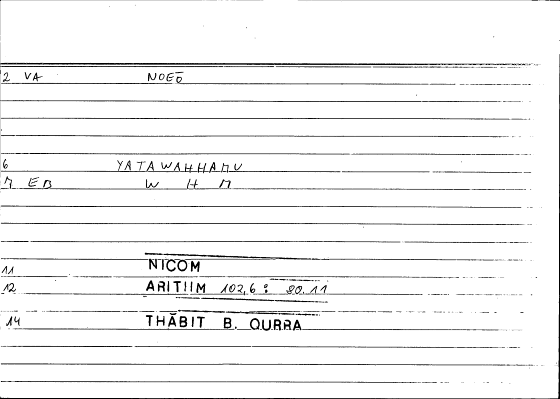 2 VA NOEŌ
6 YATAWAHHAMU
M EB W H M
11 NICOM
12 ARITIIM 102,6: 90.11
14 THĀBIT B. QURRA